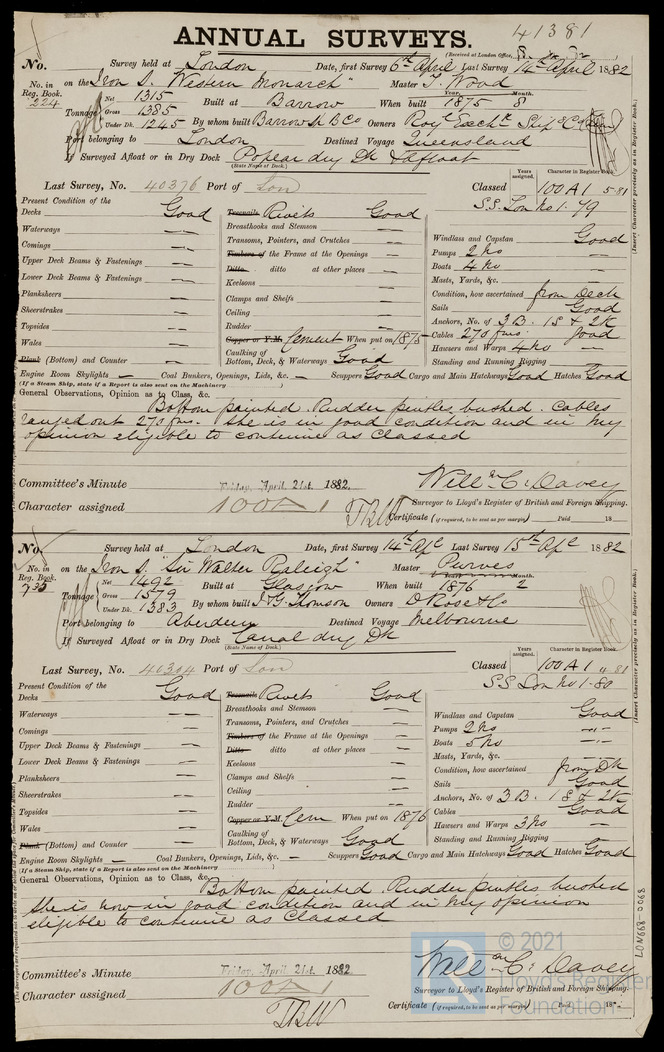 41381
ANNUAL SURVEYS.
(Received at London Office,
No. Survey held at London Date, first Survey 6th April Last Survey 14th April 1882
No. in Reg. Book. 224 on the Iron S. "Western Monarch" Master T. Wood
Tonnage Net 1315 Gross 1385 Under Dk. 1245 Built at Barrow When built Year. 1875 Month. 8
By whom built Barrow S B Co Owners Royl Exche Ship Co
Port belonging to London Destined Voyage Queensland
If Surveyed Afloat or in Dry Dock Poplar dry Dk & afloat
(State Name of Dock.)
Last Survey, No. 40376 Port of Lon Classed Years assigned. Character in Register Book. 100 A 1 5-81
S.S. Lon No 1-79
(Insert Character precisely as in Register Book.)
Present Condition of the
Decks Good
Waterways —
Comings —
Upper Deck Beams & Fastenings —
Lower Deck Beams & Fastenings —
Planksheers —
Sheerstrakes —
Topsides —
Wales —
Plank (Bottom) and Counter —
Treenails Rivets Good
Breasthooks and Stemson —
Transoms, Pointers, and Crutches —
Timbers of the Frame at the Openings —
Ditto ditto at other places —
Keelsons —
Clamps and Shelfs —
Ceiling —
Rudder —
Copper or Y.M. Cement When put on 1875
Caulking of Bottom, Deck, & Waterways Good
Windlass and Capstan Good
Pumps 2 No —
Boats 4 No —
Masts, Yards, &c. —
Condition, how ascertained from Deck
Sails Good
Anchors, No. of 3 B. 1 S & 2 K
Cables 270 fms. Good
Hawsers and Warps 4 No —
Standing and Running Rigging —
Engine Room Skylights — Coal Bunkers, Openings, Lids, &c. — Scuppers Good Cargo and Main Hatchways Good Hatches Good
(If a Steam Ship, state if a Report is also sent on the Machinery )
General Observations, Opinion as to Class, &c.
Bottom painted. Rudder pintles bushed. Cables
ranged out 270 fms. She is in good condition and in my
opinion eligible to continue as Classed
Committee's Minute Friday, April 21st. 1882. Willm C. Davey
Character assigned 100 A 1 Surveyor to Lloyd's Register of British and Foreign Shipping.
TBW Certificate (if required, to be sent as per margin) Paid 18
No. Survey held at London Date, first Survey 14th Apl Last Survey 15th Apl 1882
No. in Reg. Book. 735 on the Iron S. "Sir Walter Raleigh" Master Purves
Tonnage Net 1492 Gross 1579 Under Dk. 1383 Built at Glasgow When built Year. 1876 Month. 2
By whom built J & G Thomson Owners D Rose & Co
Port belonging to Aberdeen Destined Voyage Melbourne
If Surveyed Afloat or in Dry Dock Canal dry Dk
(State Name of Dock.)
Last Survey, No. 40304 Port of Lon Classed Years assigned. Character in Register Book. 100 A 1 81
S S Lon No 1-80
(Insert Character precisely as in Register Book.)
Present Condition of the
Decks Good
Waterways —
Comings —
Upper Deck Beams & Fastenings —
Lower Deck Beams & Fastenings —
Planksheers —
Sheerstrakes —
Topsides —
Wales —
Plank (Bottom) and Counter —
Treenails Rivets Good
Breasthooks and Stemson —
Transoms, Pointers, and Crutches —
Timbers of the Frame at the Openings —
Ditto ditto at other places —
Keelsons —
Clamps and Shelfs —
Ceiling —
Rudder —
Copper or Y.M. Cem When put on 1876
Caulking of Bottom, Deck, & Waterways Good
Windlass and Capstan Good
Pumps 2 No
Boats 5 No
Masts, Yards, &c. —
Condition, how ascertained from Dk
Sails Good
Anchors, No. of 3 B. 1 S & 2 K
Cables Good
Hawsers and Warps 3 No —
Standing and Running Rigging —
Engine Room Skylights — Coal Bunkers, Openings, Lids, &c. — Scuppers Good Cargo and Main Hatchways Good Hatches Good
(If a Steam Ship, state if a Report is also sent on the Machinery )
General Observations, Opinion as to Class, &c.
Bottom painted. Rudder pintles bushed
She is now in good condition and in my opinion
eligible to continue as Classed
Committee's Minute Friday, April 21st. 1882 Willm C. Davey
Character assigned 100 A 1 Surveyor to Lloyd's Register of British and Foreign Shipping.
TBW Certificate (if required, to be sent as per margin) Paid 18
LON668-0068
© 2021
Lloyd's Register
Foundation